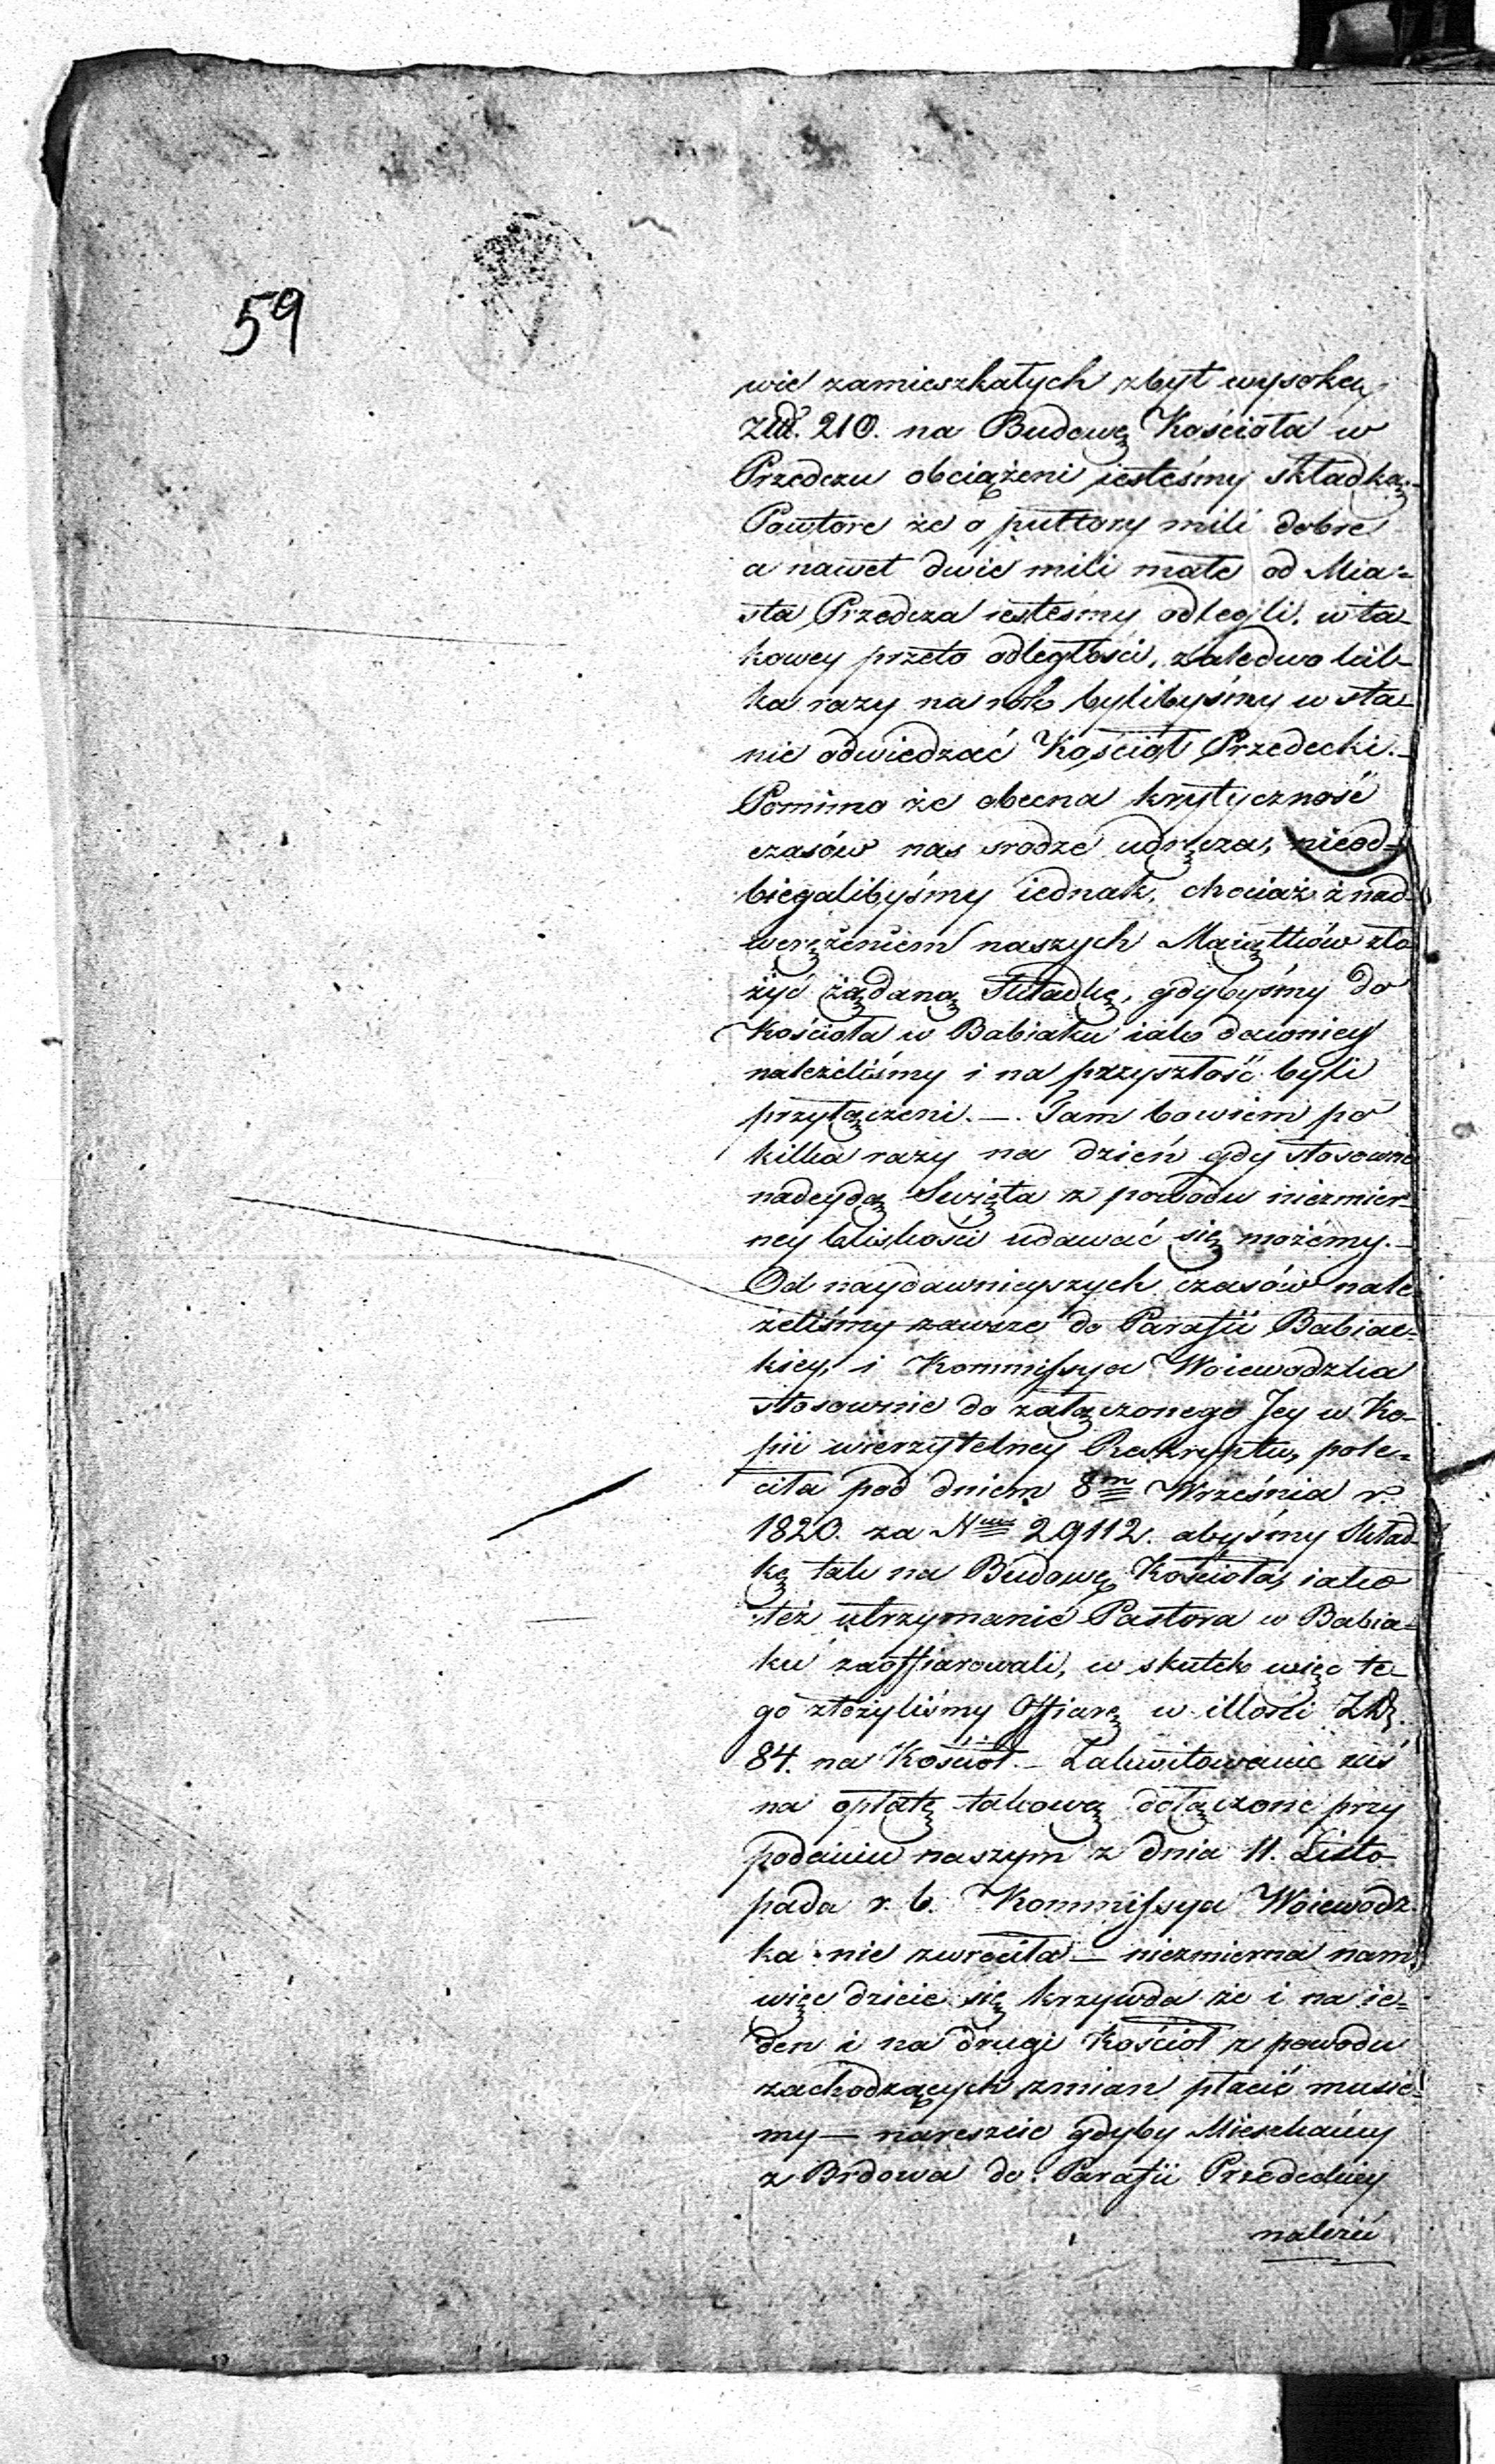 59
wie zamieszkałych zbyt wysoką
Złłt. 210. na Budowę Kościoła w
Przedczu obciążeni iesteśmy składką.
Powtore że o pułtory mili dobre
a nawet dwie mili małe od Mia=
sta Przedcza iesteśmy odlegli. w ta-
kowey przeto odległości, zaledwo kil-
ka razy na rok bylibyśmy w sta-
nie odwiedzać Kościół Przedecki.-
Pomimo że obecna krytyczność
czasów nas srodze udręcza, nieod=
biegalibyśmy iednak, chociaż z nad-
werężeniem naszych Maiątków zło
żyć żądaną Składkę, gdybyśmy do
Kościoła w Babiaku iako dawniey
należeliśmy i na przyszłość byli
przyłączeni. —. Tam bowiem po
kilka razy na dzień gdy stosowne
nadeydą Święta z powodu niezmier-
ney bliskości udawać się możemy.-
Od naydawnieyszych czasów nale-
żeliśmy zawsze do Parafii Babiac=
kiey, i Kommissya Woiewodzka
stosownie do załączonego Jey w Ko-
pii wierzytelney Reskryptu, pole=
ciła pod dniem 8m Września r.
1820. za Nrem 29112. abyśmy Skład-
kę tak na Budowę Kościoła, iako
też utrzymanie Pastora w Babia=
ku zaoffiarowali, w skutek więc te-
go złożyliśmy Offiarę w illości Złł.
84. na Kościół.- Zakwitowanie zaś
na opłatę takową dołączone przy
podaniu naszym z dnia 11. Listo
pada r. b. Kommissya Woiewodz-
ka nie zwróciła — niezmierna nam
więc dzieie się krzywda że i na ie=
den i na drugi Kościół z powodu
zachodzących zmian płacić musie=
my — nareszcie gdyby Mieszkańcy
z Brdowa do Parafii Przedeckiey
należeć